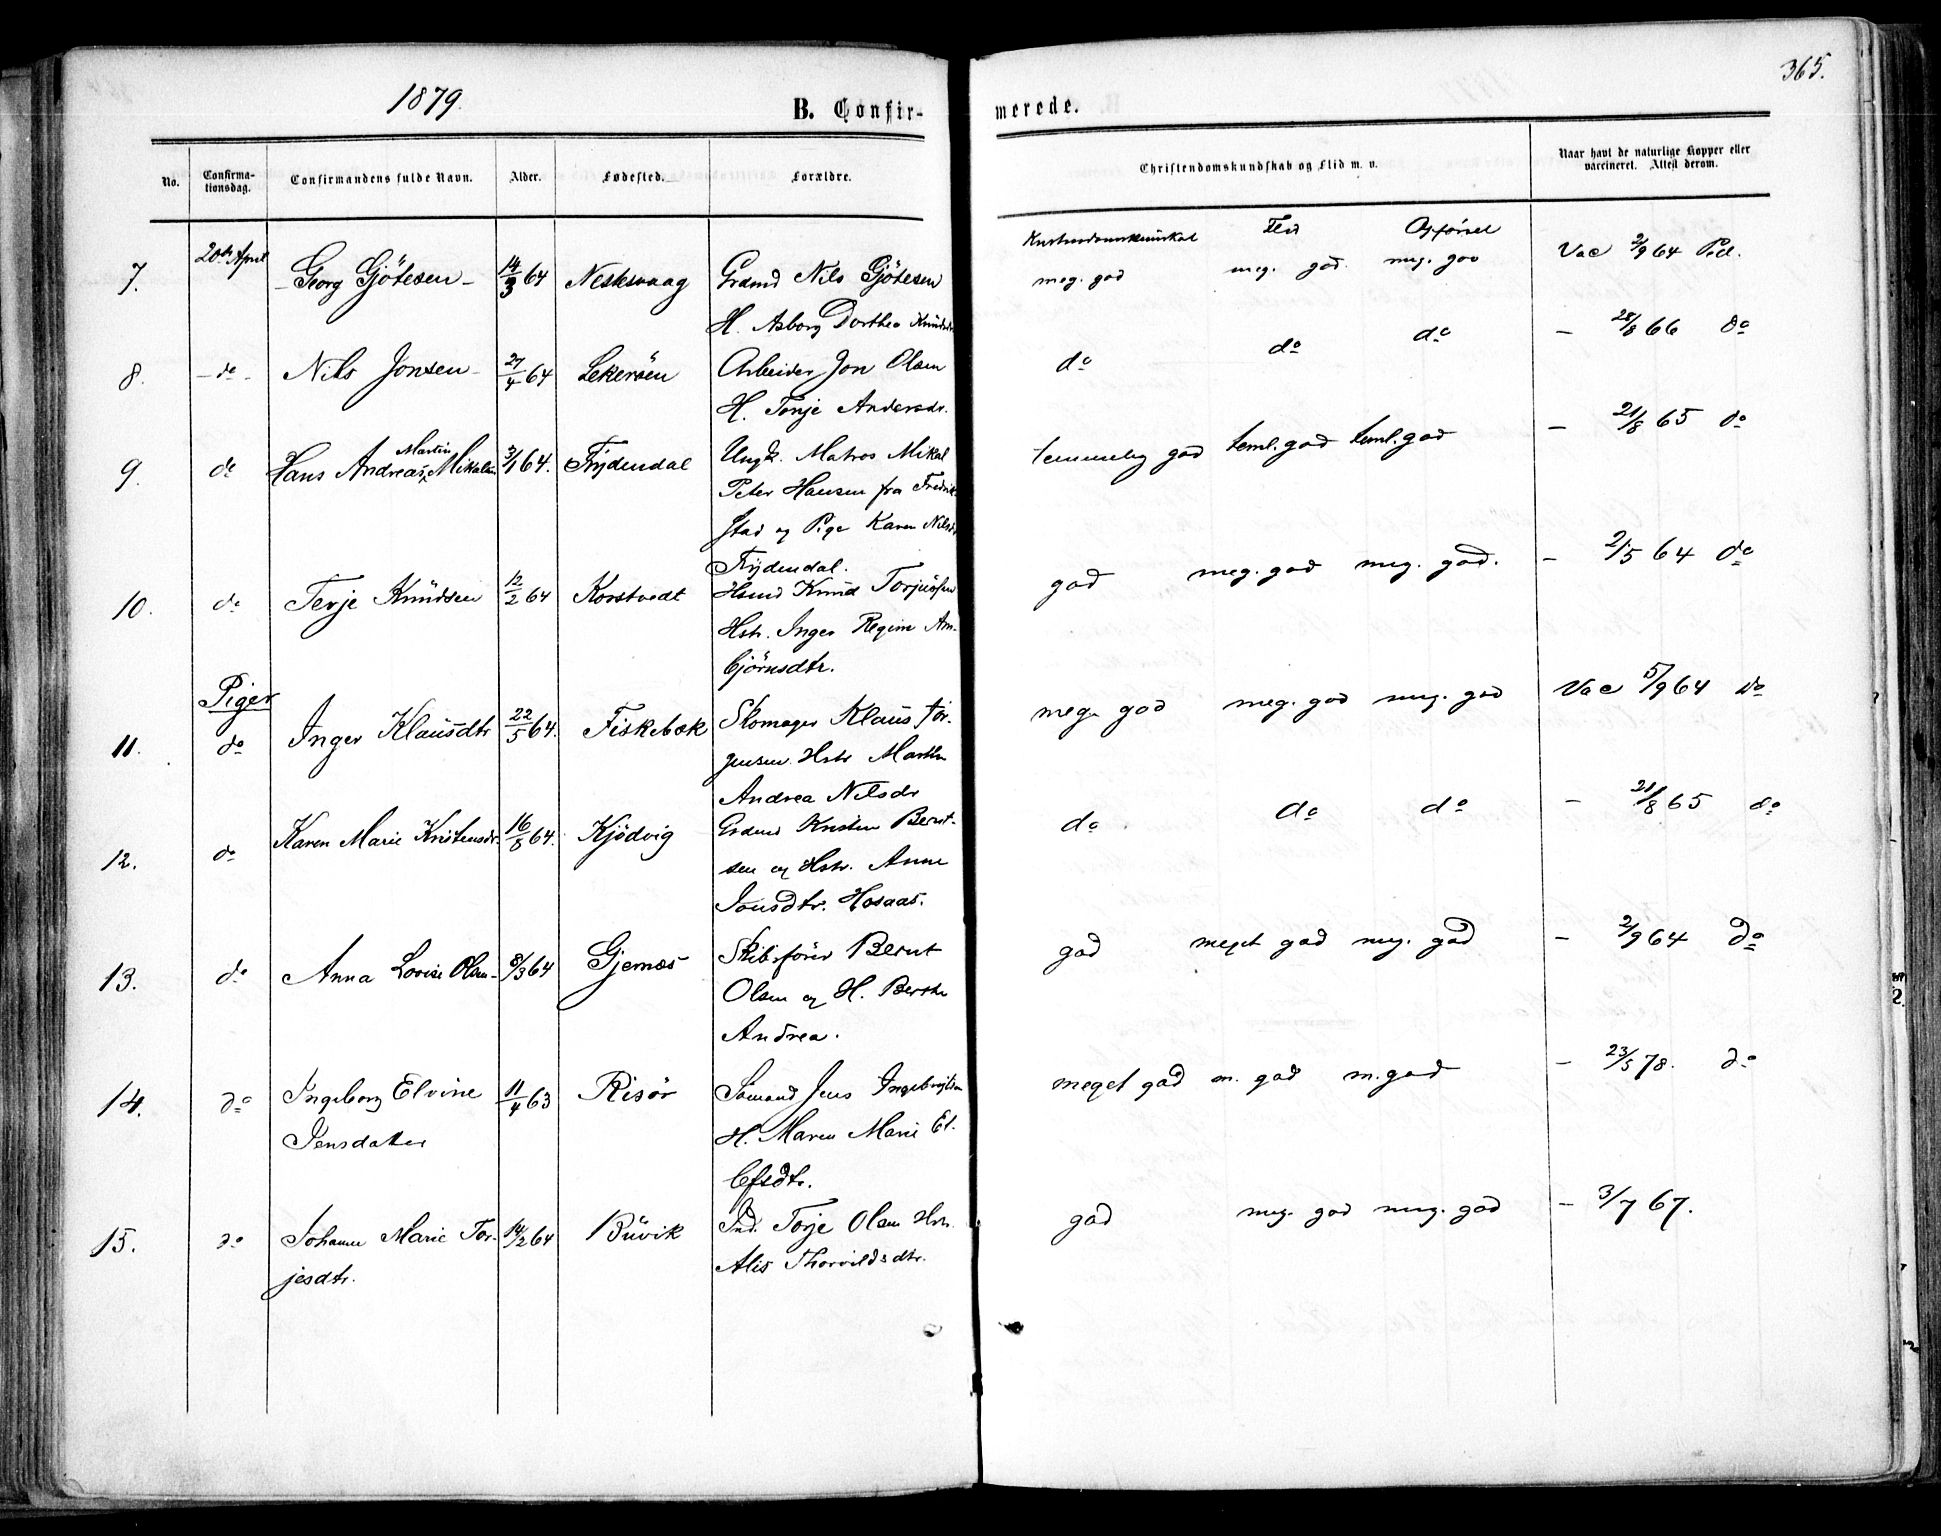 365.
1879.
B. Confir-
merede.
No.
Confirma-
tionsdag.
Confirmandens fulde Navn.
Alder.
Fødested.
Forældre.
Christendomskundskab og Flid m. v.
Naar havt de naturlige Kopper eller
vaccineret. Attest derom.
Flid Opførsel
7. 20de April Georg Gjötesen 14/3 64 Nesksvaag Grdmd Nils Gjötesen meg. god meg. god. meg. god Vac 2/9 64
H. Asborg Dorthea
8. do Nils Jonsen 27/4 64 Lekersöen Arbeider Jon Olsen do do do - 28/8 66 do
H. Tonje Andersdr.
9. do Hans Andreas Martin Mikalsen 3/1 64. Frydendal Ungk. Matros Mikal temmelig god teml. god teml. god - 21/8 65 do
Peter Hansen fra Fredrik
stad og Pige Karen Nilsd
Frydendal.
10. do Terje Knudsen 12/2 64 Korstvedt Hsmd Knud Torjusen god meg. god meg. god. - 2/5 64 do
Hstr. Inger Regine Am-
björnsdtr.
Piger
11. do Inger Klausdtr 22/5 64. Fiskebæk Skomager Klaus Jör- meget god meg. god meg. god Vac 5/9 64 do
gensen. Hstr Marthe
Andrea Nilsdr
12. do Karen Marie Kristensdr. 16/8 64. Kjödvig Grdmd Kristen Bernt- do do do - 21/8 65 do
sen og Hstr. Anne
Jonsdtr. Hosaas.
13. do Anna Lovise Olsen- 8/3 64 Gjernæs Skibsförer Bernt god meget god meg. god - 2/9 64 do
Olsen og H. Berthe
Andrea.
14. do Ingeborg Elvine 11/4 63 Risör Sömand Jens Ingebrigtsen meget god m. god m. god - 23/5 78. do
Jensdatter H. Maren Marie El-
lefsdtr.
15. do Johanne Marie Tor- 14/2 64 Buvik Ind. Torje Olsen Hstr. god meg. god meg. god - 3/7 67.
jesdtr. Alis Thorvildsdtr.